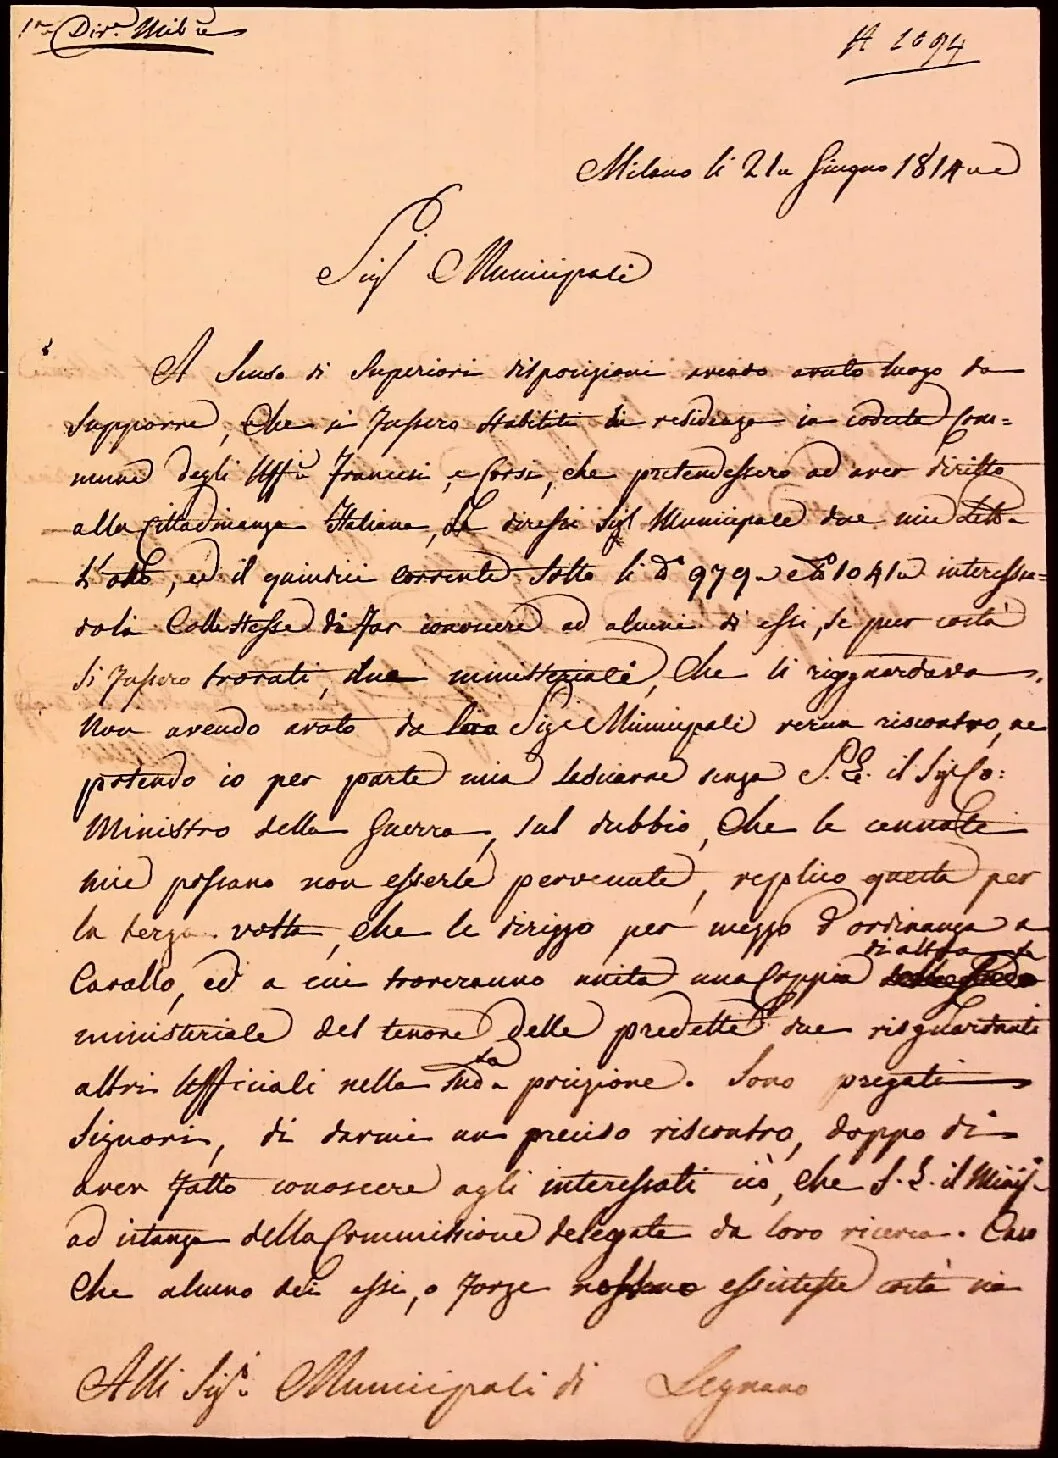 1ma Divne Milre
N 1094
Milano li 21 Giugno 1814
Sigi Municipali
A Senso di Superiori disposizioni avendo avuto luogo da
supporre, che si fussero stabiliti di residenza in codesta Com=
mune degli Uffli Francesi, e Corsi, che pretendessero ad aver diritto
alla Cittadinanza Italiana, Le diressi Sigi Municipale due mie Lett.
L'otto, ed il quindici corrente sotto li Ni 979 e 1041 interessan=
dola Colle stesse di far conoscere ad alcuni di essi, se pur costà
si fussero trovati, due ministeriali, che li risguardava.
Non avendo avuto da loro Sigi Municipali verun riscontro, ne
potendo io per parte mia lasciarne senza S. E. il Sig Co:
Ministro della Guerra, sul dubbio, che le cennate
mie possano non esserle pervenute, replico questa per
la terza volta, che le dirizzo per mezzo d'ordinanza a
Cavallo, ed a cui troveranno unita una Coppia di altra
ministeriale del tenore delle predette due risguardanti
altri Ufficiali nella sudda posizione. Sono pregati
Signori, di darmi un preciso riscontro, doppo di
aver fatto conoscere agli interessati ciò, che S. E. il Minis.
ad istanza della Commissione delegata da loro ricerca. Caso
che alcuno dei essi, o forze nessuno essistesse costà ne
Alli Sigi Municipali di Legnano